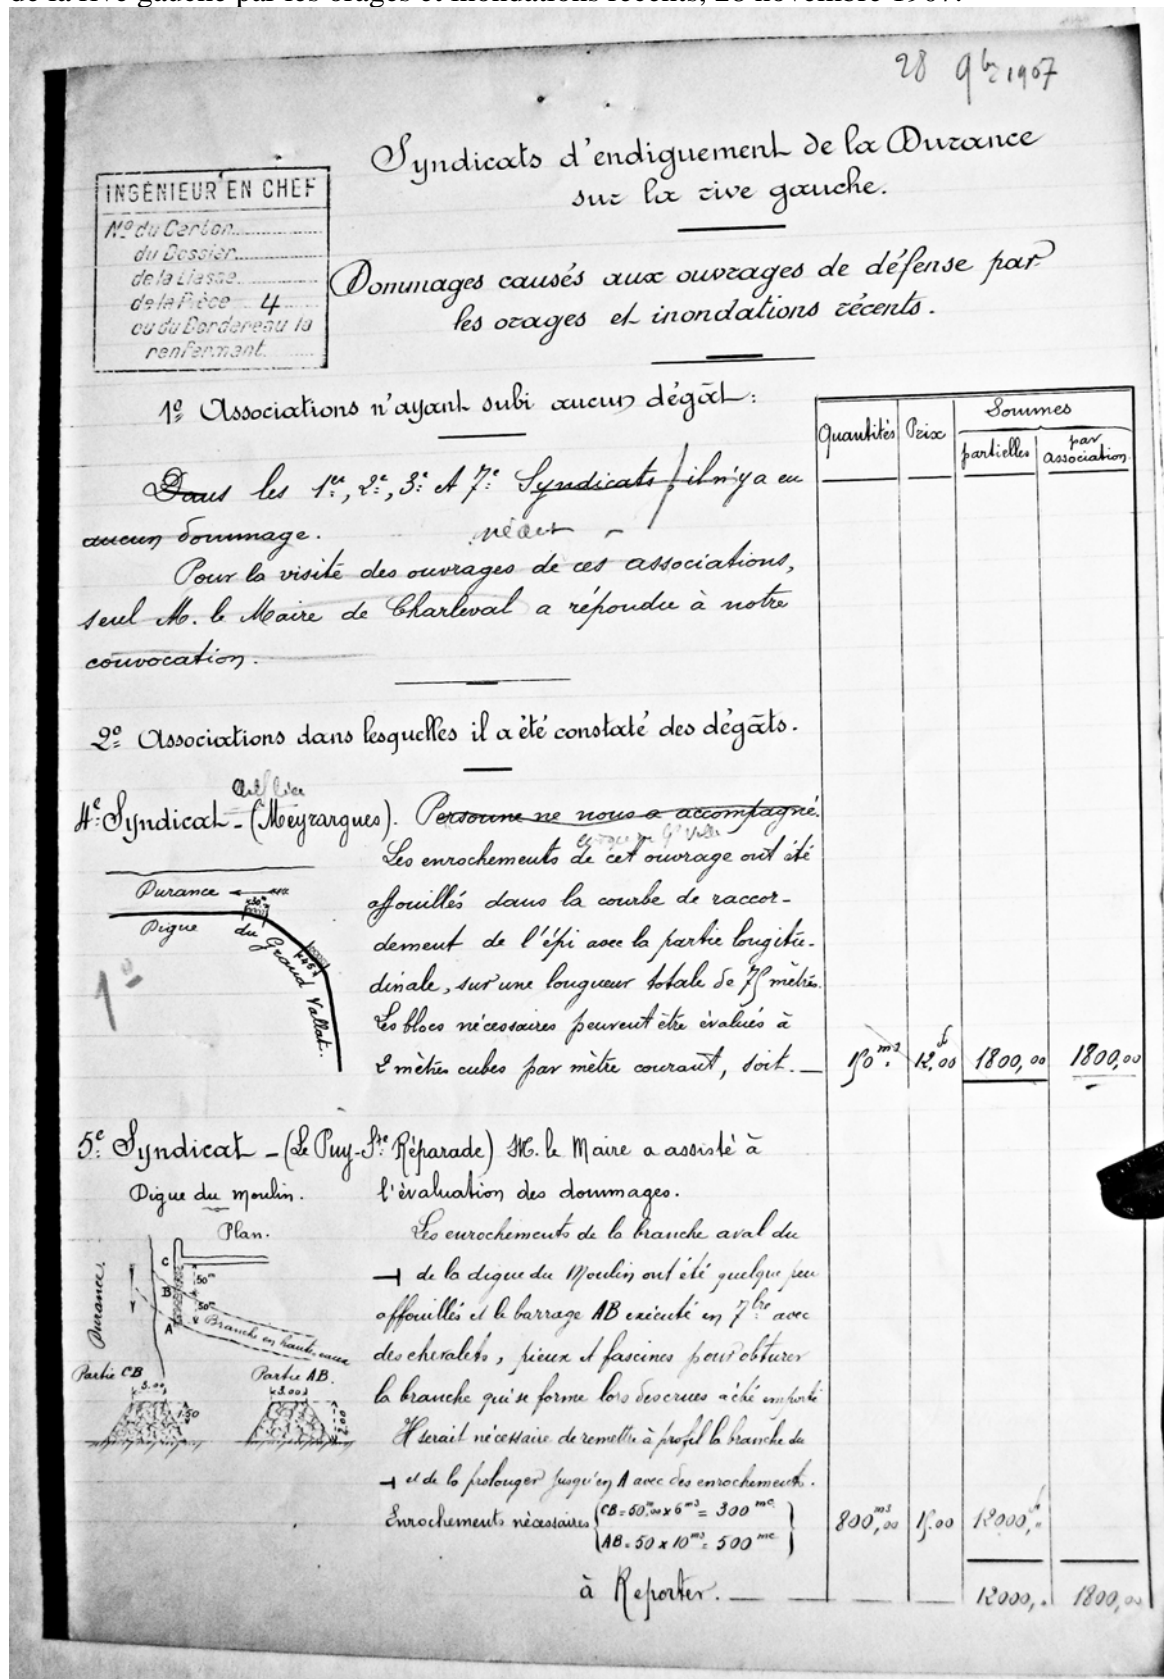 de la rive gauche par les orages et inondations récents, 28 novembre 1907.
28 9bre 1907
Syndicats d'endiguement de la Durance
sur la rive gauche.
INGÉNIEUR EN CHEF
No du Carton
du Dossier
de la Liasse
de la Pièce 4
ou du Bordereau la
renfermant
Dommages causés aux ouvrages de défense par
les orages et inondations récents.
1º Associations n'ayant subi aucun dégât:
Quantités Prix Sommes
partielles par association.
Dans les 1er, 2e, 3e et 7e Syndicats, il n'y a eu
aucun dommage. néant
Pour la visite des ouvrages de ces associations,
seul M. le Maire de Charleval a répondu à notre
convocation.
2º Associations dans lesquelles il a été constaté des dégâts.
4e Syndicat - (Meyrargues). Personne ne nous a accompagné.
Les enrochements de cet ouvrage ont été
affouillés dans la courbe de raccor-
dement de l'épi avec la partie longitu-
dinale, sur une longueur totale de 75 mètres.
Les blocs nécessaires peuvent être évalués à
2 mètres cubes par mètre courant, soit. 150 m3. 12f.00 1800,00 1800,00
Durance
30m
Digue du Grand Vallat.
45
1º
5e Syndicat - (Le Puy-Ste Réparade) M. le Maire a assisté à
l'évaluation des dommages.
Digue du Moulin.
Plan.
Durance.
C
50m
B
50m
A
Branche en hautes eaux
Partie CB
3.00
1.50
Partie AB.
3.00
2.00
Les enrochements de la branche aval du
⊣ de la digue du Moulin ont été quelque peu
affouillés et le barrage AB exécuté en 7bre avec
des chevalets, pieux et fascines pour obturer
la branche qui se forme lors des crues a été emporté
Il serait nécessaire de remettre à profil la branche du
⊣ et de la prolonger jusqu'en A avec des enrochements.
Enrochements nécessaires { CB = 50m,00 x 6m3 = 300mc
AB = 50 x 10m3 = 500mc } 800m3,00 15.00 12000f,"
à Reporter. 12000,. 1800,00